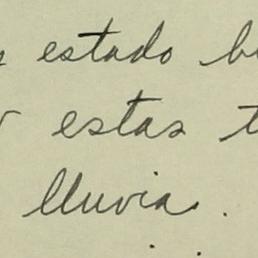 estado
estas
lluvia.